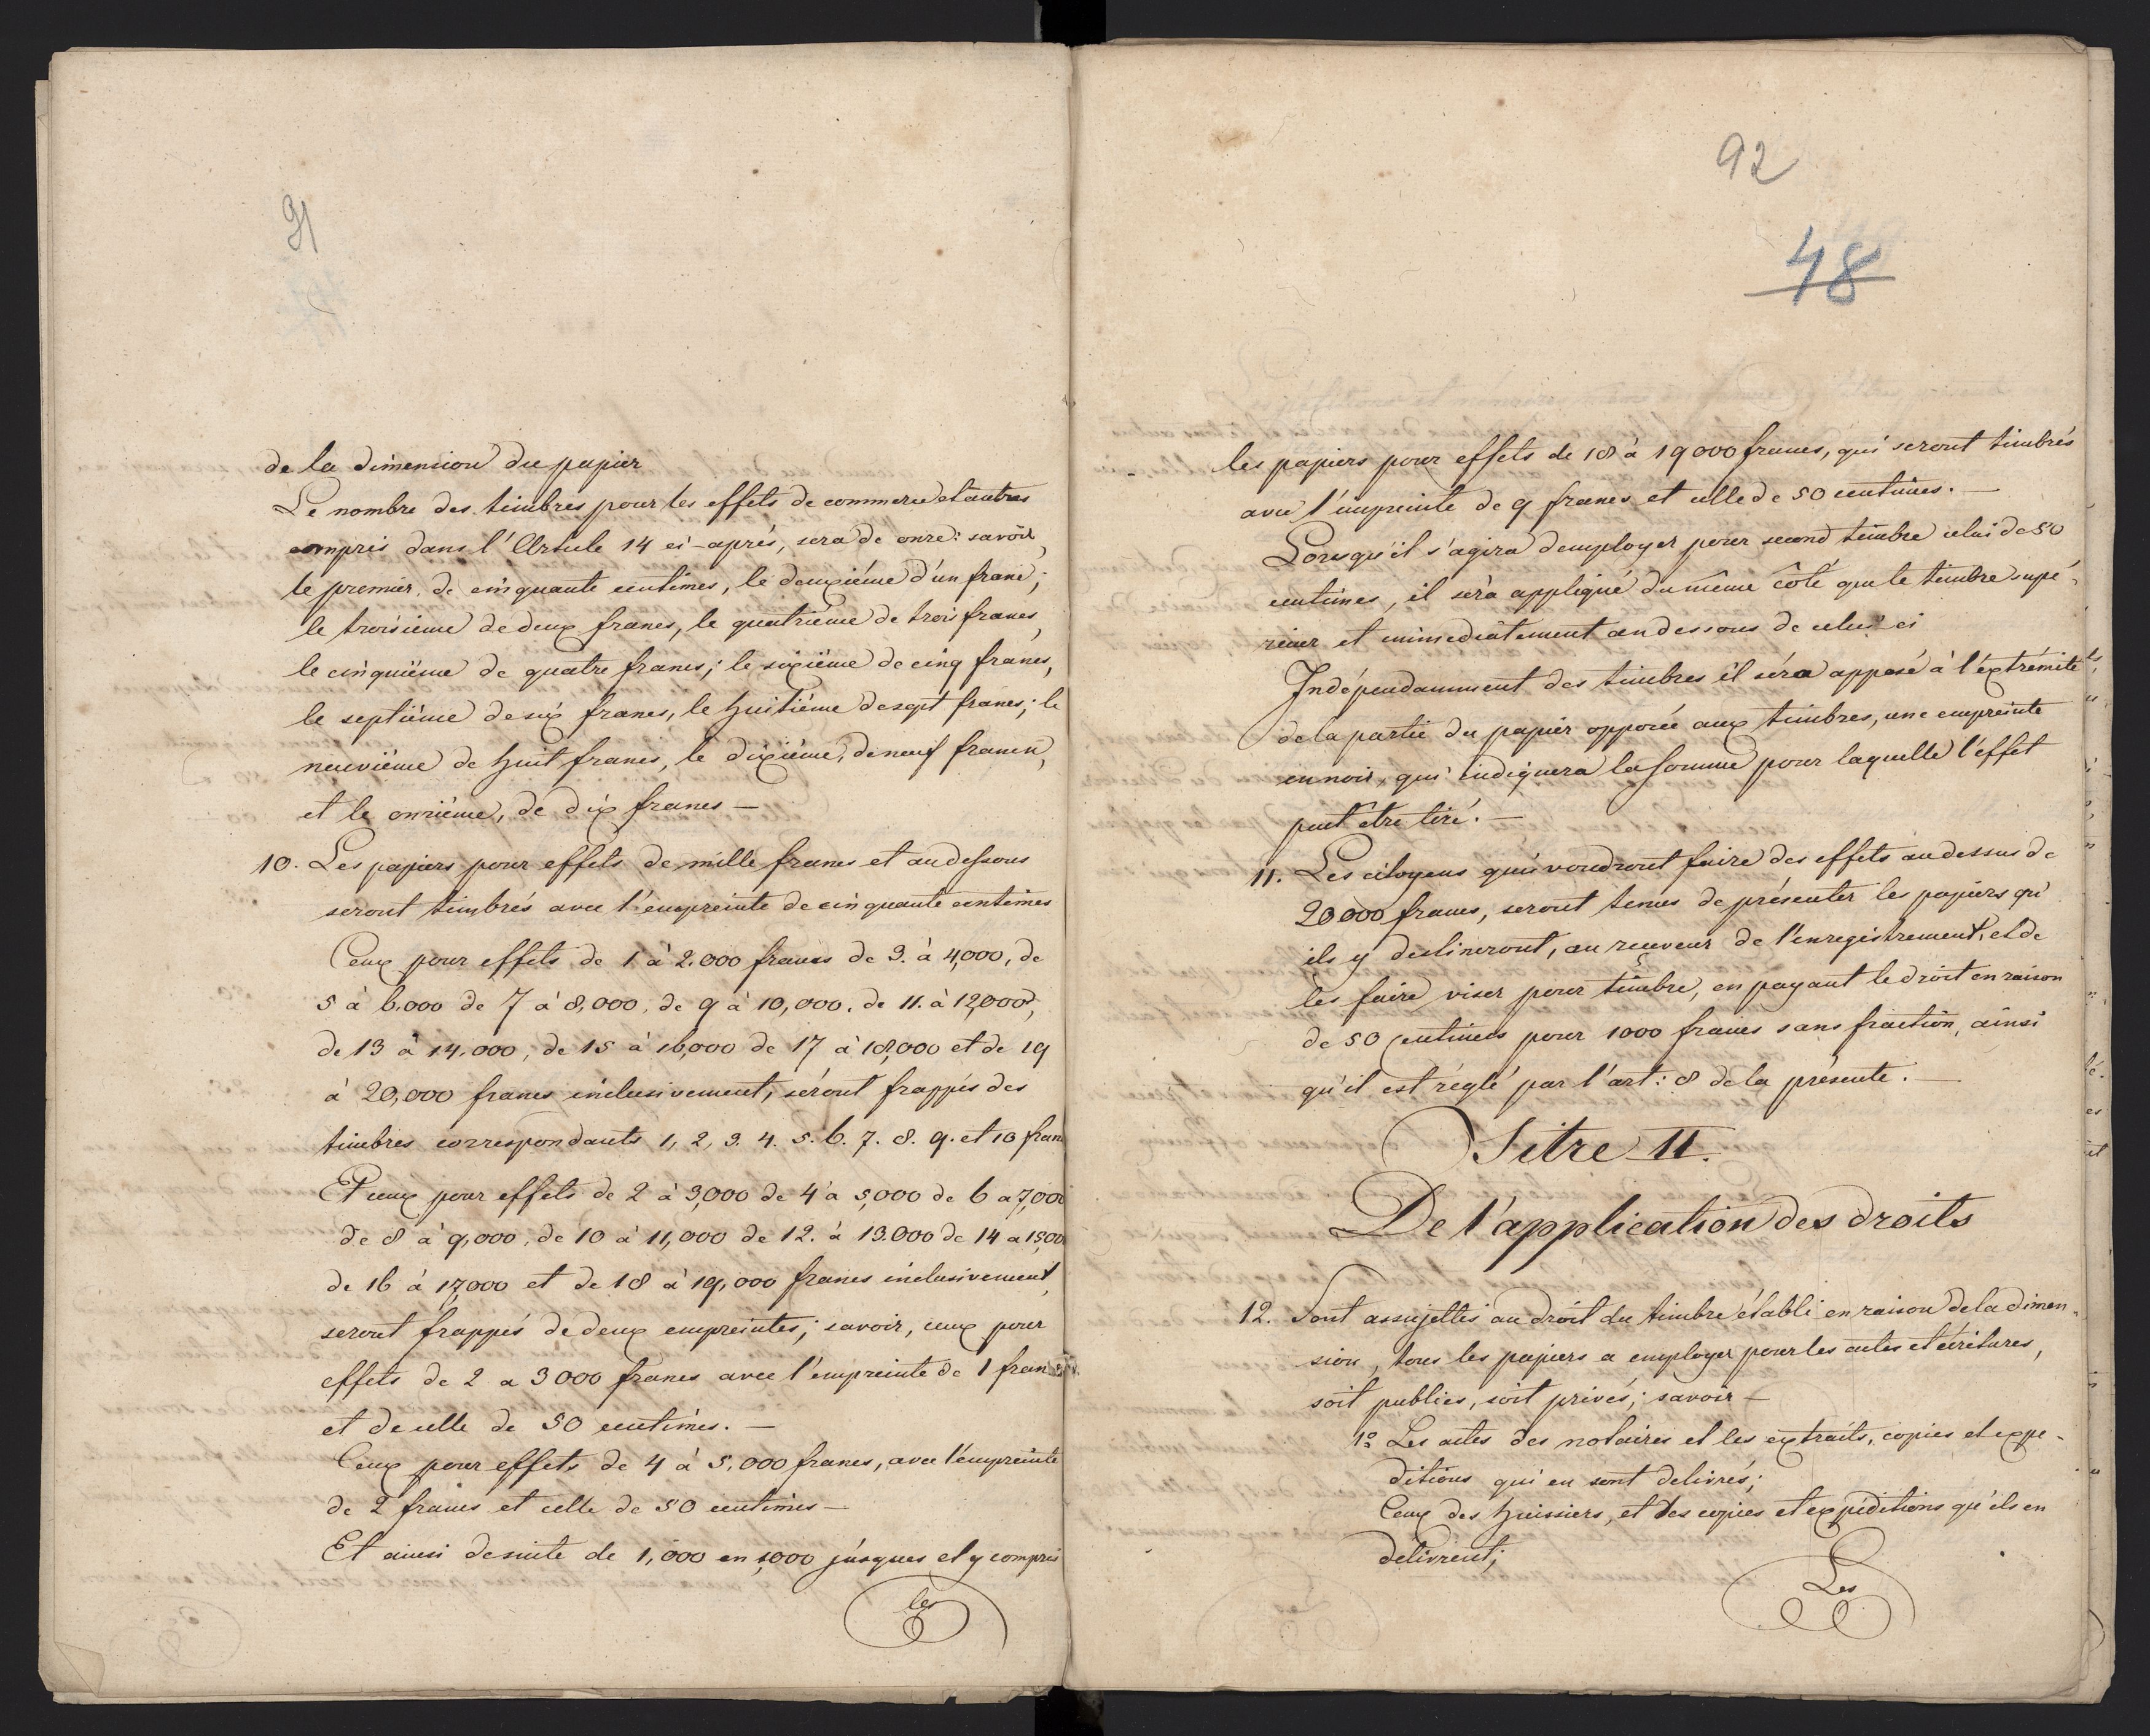 91
de la dimension du papier
Le nombre des timbres pour les effets de commerce et autres
compris dans l'Article 14 ci-après, sera de onze: savoir,
le premier, de cinquante centimes, le deuxiéme d'un franc;
le troisieme de deux francs, le quatrieme de trois francs,
le cinquième de quatre francs; le sixième de cinq francs,
le septième de six francs, le huitième de sept francs; le
neuvième de huit francs, le dixième, de neuf francs,
et le onzième, de dix francs —
10. Les papiers pour effets de mille francs et au dessous
seront timbrés avec l'empreinte de cinquante centimes
Ceux pour effets de 1 à 2.000 francs de 3. à 4,000, de
5 à 6.000 de 7 à 8,000, de 9 à 10,000, de 11. à 12,000,
de 13 à 14.000, de 15 à 16,000 de 17 à 18,000 et de 19
à 20,000 francs inclusivement, séront frappés des
timbres correspondants 1, 2, 3. 4. 5. 6. 7. 8. 9. et 10 fran
Et ceux pour effets de 2 à 3,000 de 4 à 5,000 de 6 a 7,000
de 8 à 9,000, de 10 à 11,000 de 12. à 13.000 de 14 a 15,00
de 16 à 17,000 et de 18 à 19,000 francs inclusivement,
seront frappés de deux empreintes; savoir, ceux pour
effets de 2 a 3000 francs avec l'empreinte de 1 franc
et de celle de 50 centimes. —
Ceux pour effets de 4 à 5,000 francs, avec l'empreinte
de 2 francs et celle de 50 centimes —
Et ainsi de suite de 1,000 en 1,000 jusques et y compris
les
92
48
les papiers pour effets de 18 à 19000 francs, qui seront timbrés
avec l'empreinte de 9 francs et celle de 50 centimes. —
Lorsqu'il s'agira d'employer pour second timbre celui de 50
centimes, il séra appliqué du même côté que le timbre supé-
rieur et immediatement au dessous de celui-ci
Indépendamment des timbres il séra apposé à l'éxtrémité
de la partie du papier opposée aux timbres, une empreinte
en noir, qui indiquera la somme pour laquelle l'effet
peut être tiré. —
11. Les citoyens qui voudront faire des effets au dessus de
20000 francs, seront tenus de présenter les papiers qu'
ils y destineront, au receveur de l'enregistrement, et de
les faire viser pour timbre, en payant le droit en raison
de 50 centimes pour 1000 francs sans fraction, ainsi
qu'il est réglé par l'art: 8 de la présente. —
Titre II.
De l'application des droits
12. Sont assujettis au droit du timbre établi en raison de la dimen-
sion, tous les papiers a employer pour les actes et écritures,
soit publics, soit privés; savoir —
1º Les actes des notaires et les extraits, copies et expe-
ditions qui en sont delivrés;
Ceux des huissiers, et les copies et expéditions qu'ils en
délivrent;
Les